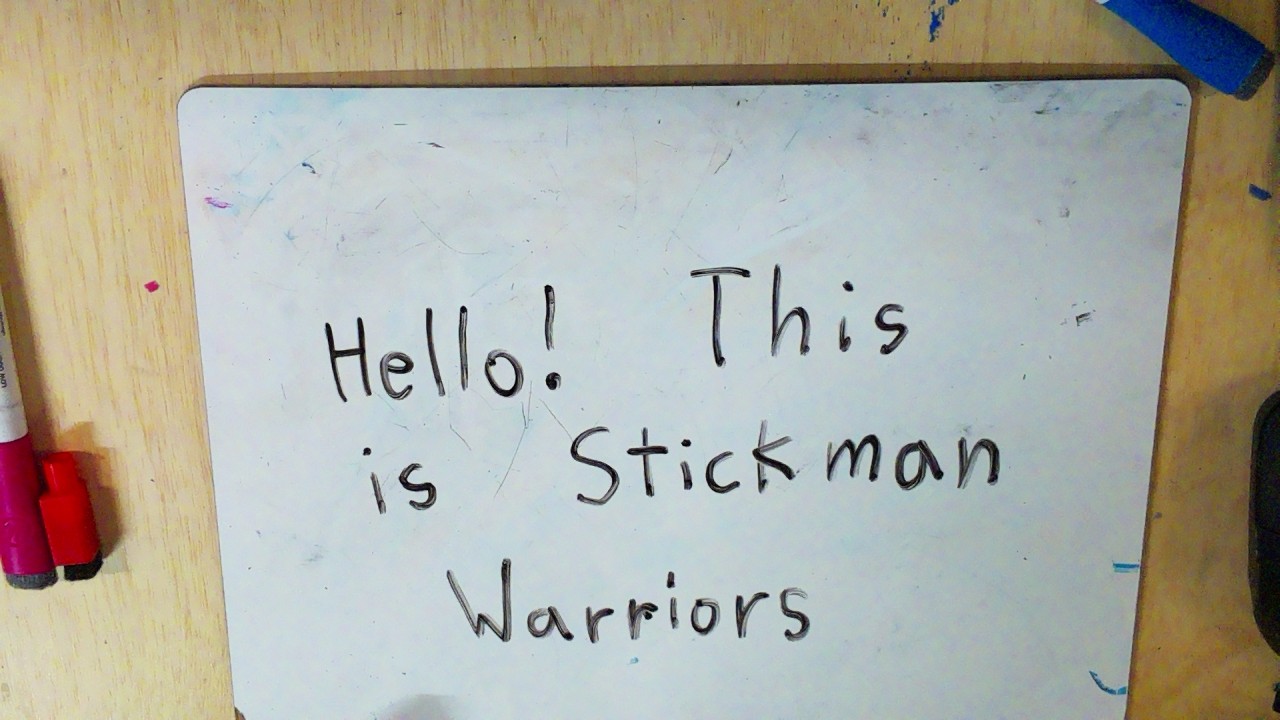 Hello! This
is Stickman
Warriors